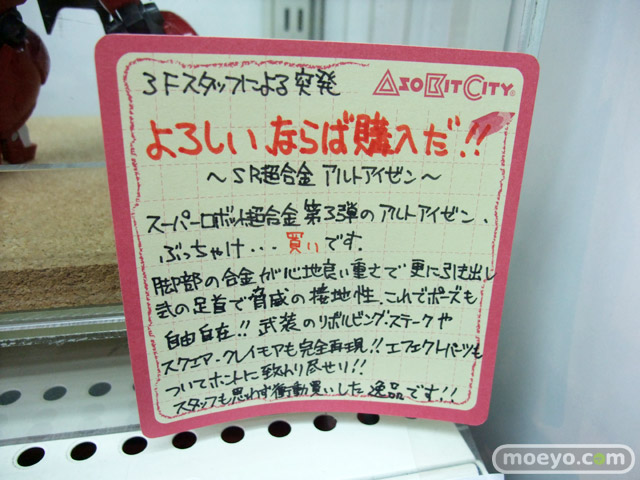 3Fスタッフによる突発
ASOBITCITY
よろしいならば購入だ!!
～SR超合金 アルトアイゼン～
スーパーロボット超合金 第33弾の アルトアイゼン、
ぶっちゃけ・・・買いです。
脚部の合金が心地良い重さで 更に引き出し
式の足首で脅威の接地性、これでポーズも
自由自在!! 武装のリボルビング・ステークや
スクエア・クレイモアも完全再現!! エフェクトパーツも
ついてホントに致れり尽せり!!
スタッフも思わず衝動買いした逸品です!!
moeyo.com